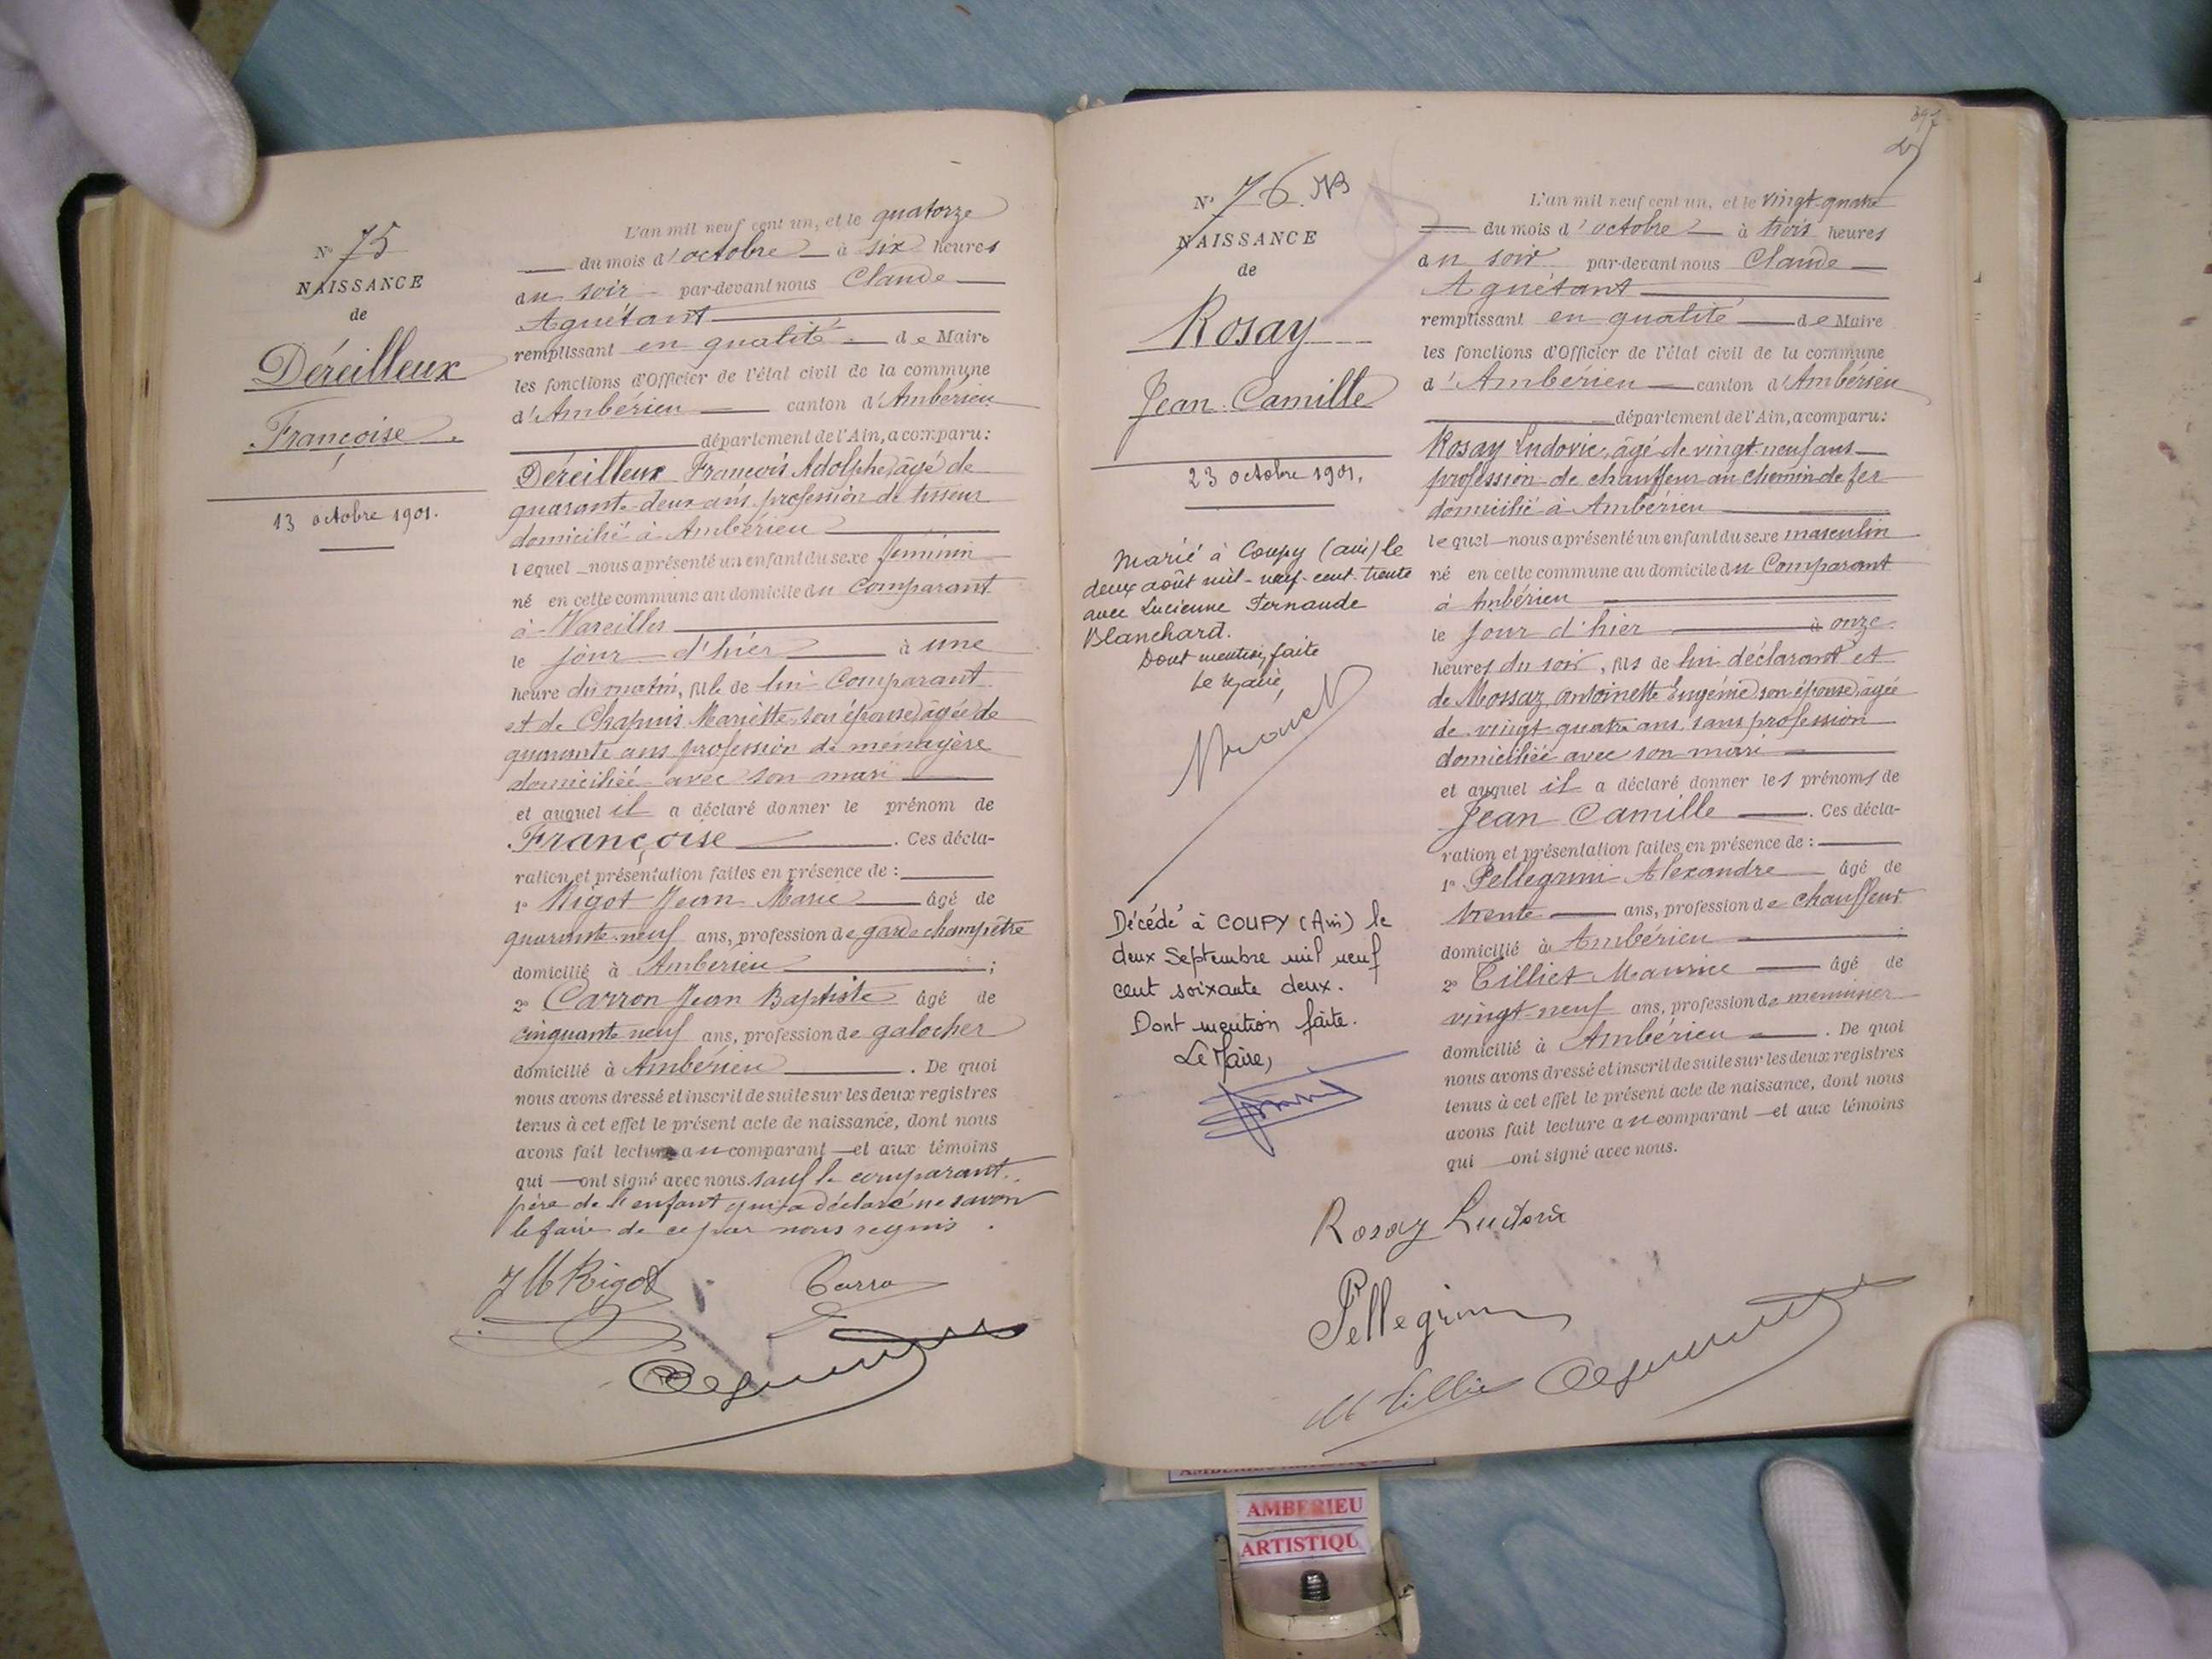 N° 75
NAISSANCE
de
Déreilleux
Françoise
13 octobre 1901.
L'an mil neuf cent un, et le quatorze
du mois d'octobre à six heures
du soir par-devant nous Claude
Aguétant
remplissant en qualité de Maire
les fonctions d'Officier de l'état civil de la commune
d'Ambérieu canton d'Ambérieu
département de l'Ain, a comparu:
Déreilleux François Adolphe, âgé de
quarante-deux ans, profession de tisseur
domicilié à Ambérieu
lequel nous a présenté un enfant du sexe féminin
né en cette commune au domicile du Comparant
à Vareilles
le jour d'hier à une
heure du matin, fille de lui Comparant
et de Chapuis Mariette, son épouse, âgée de
quarante ans profession de ménagère
domiciliée avec son mari
et auquel il a déclaré donner le prénom de
Françoise . Ces décla-
ration et présentation faites en présence de :
1° Rigot Jean Marie âgé de
quarante-neuf ans, profession de garde champêtre
domicilié à Ambérieu ;
2° Carron Jean Baptiste âgé de
cinquante neuf ans, profession de galocher
domicilié à Ambérieu . De quoi
nous avons dressé et inscrit de suite sur les deux registres
tenus à cet effet le présent acte de naissance, dont nous
avons fait lecture au comparant et aux témoins
qui ont signé avec nous sauf le comparant
père de l'enfant qui a déclaré ne savoir
le faire de ce par nous requis.
J M Rigot
N° 76
NAISSANCE
de
Rosay
Jean Camille
23 octobre 1901.
Marié à Coupy (ain) le
deux août mil-neuf-cent-trente
avec Lucienne Fernande
Blanchard.
Dont mention faite
Le Maire,
Décédé à COUPY (Ain) le
deux Septembre mil neuf
cent soixante deux.
Dont mention faite.
Le Maire,
L'an mil neuf cent un, et le vingt-quatre
du mois d'octobre à trois heures
du soir par-devant nous Claude
Aguétant
remplissant en qualité de Maire
les fonctions d'Officier de l'état civil de la commune
d'Ambérieu canton d'Ambérieu
département de l'Ain, a comparu:
Rosay Ludovic, âgé de vingt-neuf ans
profession de chauffeur au chemin de fer
domicilié à Ambérieu
lequel nous a présenté un enfant du sexe masculin
né en cette commune au domicile du Comparant
à Ambérieu
le jour d'hier à onze
heures du soir, fils de lui déclarant et
de Mossaz Antoinette Eugénie, son épouse, âgée
de vingt-quatre ans, sans profession
domiciliée avec son mari
et auquel il a déclaré donner les prénoms de
Jean Camille . Ces décla-
ration et présentation faites en présence de :
1° Pellegrini Alexandre âgé de
trente ans, profession de chauffeur
domicilié à Ambérieu
2° Tilliet Maurice âgé de
vingt-neuf ans, profession de menuisier
domicilié à Ambérieu . De quoi
nous avons dressé et inscrit de suite sur les deux registres
tenus à cet effet le présent acte de naissance, dont nous
avons fait lecture au comparant et aux témoins
qui ont signé avec nous.
Rosay Ludovic
Pellegrini
AMBERIEU
ARTISTIQU